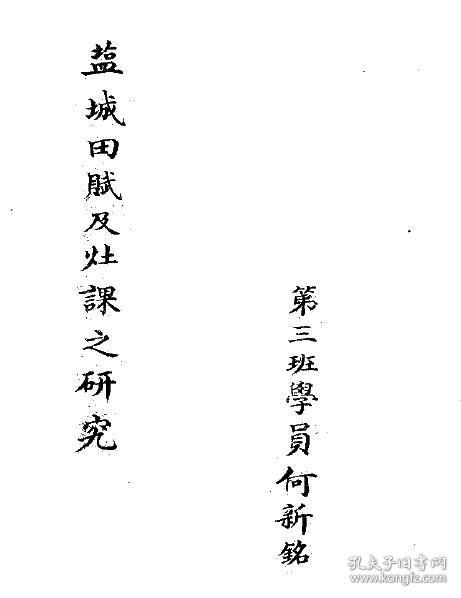 盐城田賦及灶課之研究
第三班學員何新銘
孔夫子旧书网
www.kongfz.com